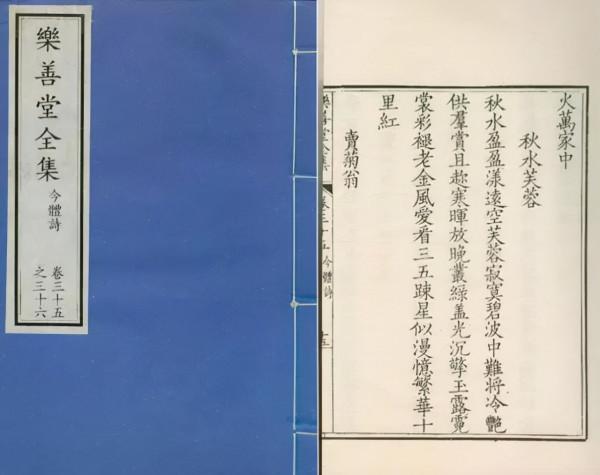 樂善堂全集
今體詩
卷三十五
之三十六
火萬家中
秋水芙蓉
秋水盈盈漾遠空芙蓉寂寞碧波中難將冷艷
供羣賞且趂寒暉放晚叢綠盖光沉擎玉露霓
裳彩褪老金風愛看三五踈星似漫憶繁華十
里紅
樂善堂全集
卷三十五 今體詩
賣菊翁